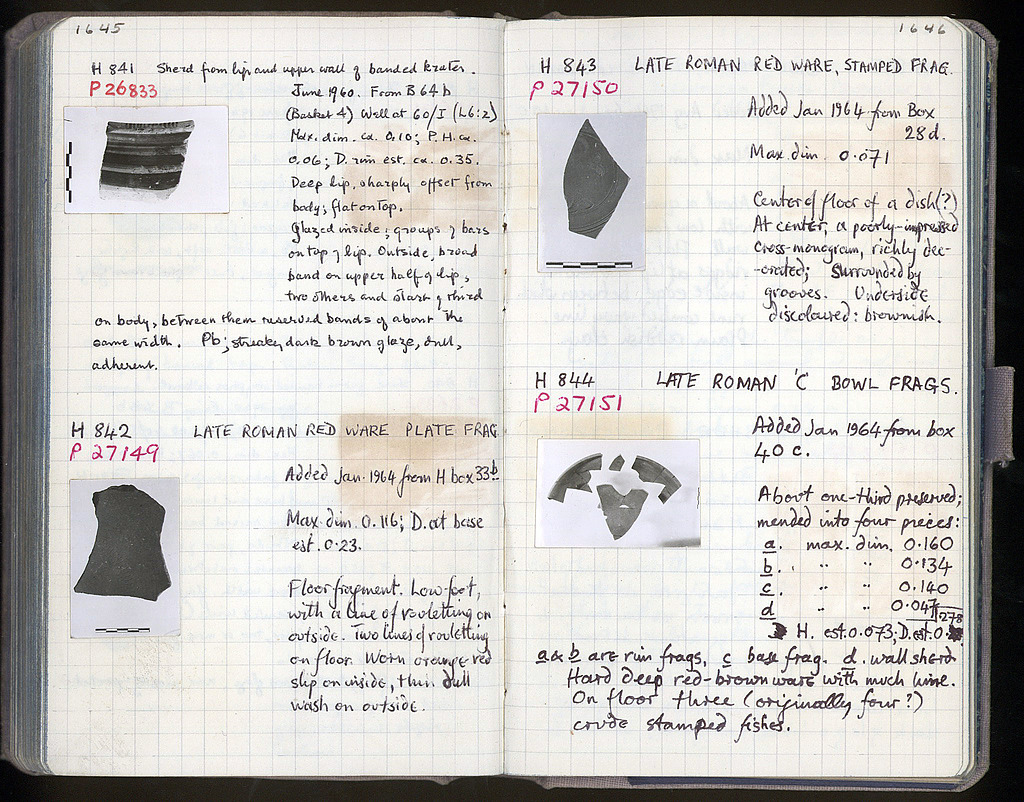 1645
H 841 Sherd from lip and upper wall of banded krater.
P 26833
June 1960. From B 64 b
(Basket 4) Well at 60/I (L6:2)
Max. dim. ca. 0.10; P. H. ca.
0.06; D. rim est. ca. 0.35.
Deep lip, sharply offset from
body; flat on top.
Glazed inside; groups of bars
on top of lip. Outside, broad
band on upper half of lip,
two others and start of third
on body, between them reserved bands of about the
same width. Pb; streaky dark brown glaze, dull,
adherent.
H 842 LATE ROMAN RED WARE PLATE FRAG
P 27149
Added Jan. 1964 from H box 33b
Max. dim. 0.116; D. at base
est. 0.23.
Floor fragment. Low foot,
with a line of rouletting on
outside. Two lines of rouletting
on floor. Worn orange-red
slip on inside, thin dull
wash on outside.
1646
H 843 LATE ROMAN RED WARE, STAMPED FRAG.
P 27150
Added Jan 1964 from Box
28d.
Max. dim. 0.071
Center of floor of a dish(?)
At center, a poorly-impressed
cross-monogram, richly dec-
orated; surrounded by
grooves. Underside
discoloured: brownish.
H 844 LATE ROMAN 'C' BOWL FRAGS.
P 27151
Added Jan 1964 from box
40 c.
About one-third preserved;
mended into four pieces:
a. max. dim. 0.160
b. " " 0.134
c. " " 0.140
d " " 0.047
H. est. 0.073; D. est. 0.278
a & b are rim frags, c base frag. d. wall sherd
Hard deep red-brown ware with much lime.
On floor three (originally four?)
crude stamped fishes.